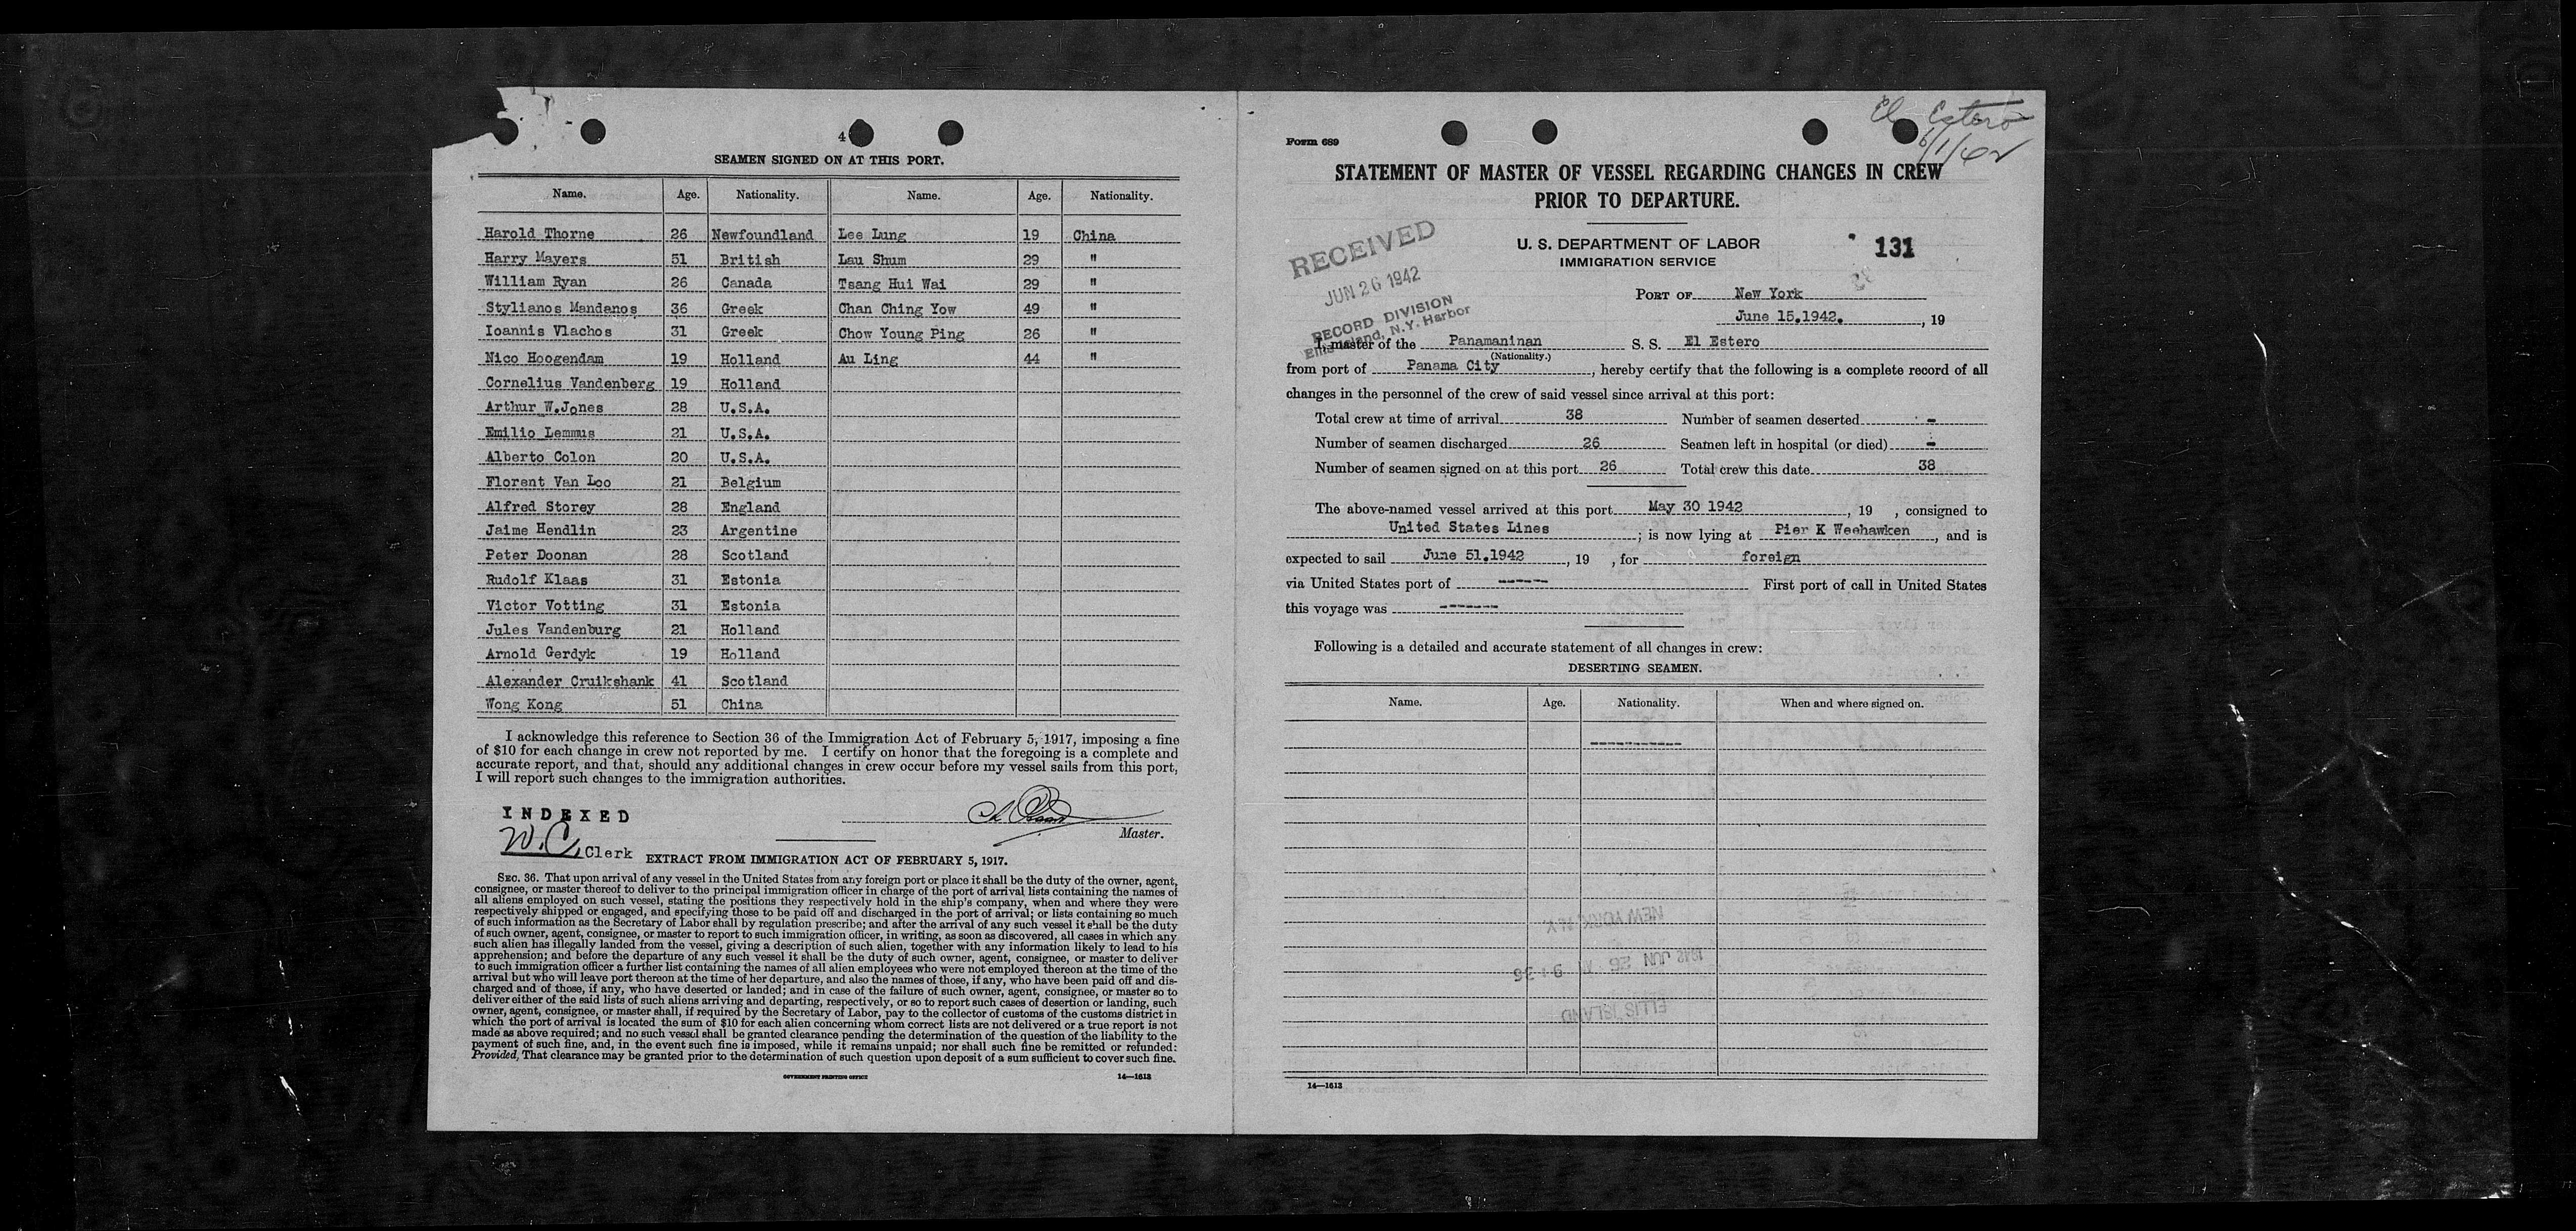 4
SEAMEN SIGNED ON AT THIS PORT.
Name. Age. Nationality. Name. Age. Nationality.
Harold Thorne 26 Newfoundland Lee Lung 19 China
Harry Mayers 51 British Lau Shum 29 "
William Ryan 26 Canada Tsang Hui Wai 29 "
Stylianos Mandanos 36 Greek Chan Ching Yow 49 "
Ioannis Vlachos 31 Greek Chow Young Ping 26 "
Nico Hoogendam 19 Holland Au Ling 44 "
Cornelius Vandenberg 19 Holland
Arthur W.Jones 28 U.S.A.
Emilio Lemmus 21 U.S.A.
Alberto Colon 20 U.S.A.
Florent Van Loo 21 Belgium
Alfred Storey 28 England
Jaime Hendlin 23 Argentine
Peter Doonan 28 Scotland
Rudolf Klaas 31 Estonia
Victor Votting 31 Estonia
Jules Vandenburg 21 Holland
Arnold Gerdyk 19 Holland
Alexander Cruikshank 41 Scotland
Wong Kong 51 China
I acknowledge this reference to Section 36 of the Immigration Act of February 5, 1917, imposing a fine
of $10 for each change in crew not reported by me. I certify on honor that the foregoing is a complete and
accurate report, and that, should any additional changes in crew occur before my vessel sails from this port,
I will report such changes to the immigration authorities.
INDEXED
Master.
W.C. Clerk
EXTRACT FROM IMMIGRATION ACT OF FEBRUARY 5, 1917.
SEC. 36. That upon arrival of any vessel in the United States from any foreign port or place it shall be the duty of the owner, agent,
consignee, or master thereof to deliver to the principal immigration officer in charge of the port of arrival lists containing the names of
all aliens employed on such vessel, stating the positions they respectively hold in the ship's company, when and where they were
respectively shipped or engaged, and specifying those to be paid off and discharged in the port of arrival; or lists containing so much
of such information as the Secretary of Labor shall by regulation prescribe; and after the arrival of any such vessel it shall be the duty
of such owner, agent, consignee, or master to report to such immigration officer, in writing, as soon as discovered, all cases in which any
such alien has illegally landed from the vessel, giving a description of such alien, together with any information likely to lead to his
apprehension; and before the departure of any such vessel it shall be the duty of such owner, agent, consignee, or master to deliver
to such immigration officer a further list containing the names of all alien employees who were not employed thereon at the time of the
arrival but who will leave port thereon at the time of her departure, and also the names of those, if any, who have been paid off and dis-
charged and of those, if any, who have deserted or landed; and in case of the failure of such owner, agent, consignee, or master so to
deliver either of the said lists of such aliens arriving and departing, respectively, or so to report such cases of desertion or landing, such
owner, agent, consignee, or master shall, if required by the Secretary of Labor, pay to the collector of customs of the customs district in
which the port of arrival is located the sum of $10 for each alien concerning whom correct lists are not delivered or a true report is not
made as above required; and no such vessel shall be granted clearance pending the determination of the question of the liability to the
payment of such fine, and, in the event such fine is imposed, while it remains unpaid; nor shall such fine be remitted or refunded:
Provided, That clearance may be granted prior to the determination of such question upon deposit of a sum sufficient to cover such fine.
GOVERNMENT PRINTING OFFICE 14—1613
El Estero
6/1/42
Form 689
STATEMENT OF MASTER OF VESSEL REGARDING CHANGES IN CREW
PRIOR TO DEPARTURE.
U. S. DEPARTMENT OF LABOR
IMMIGRATION SERVICE
131
RECEIVED
JUN 26 1942
RECORD DIVISION
Ellis Island, N.Y. Harbor
PORT OF New York
June 15.1942. , 19
I, master of the Panamaninan S. S. El Estero
(Nationality.)
from port of Panama City , hereby certify that the following is a complete record of all
changes in the personnel of the crew of said vessel since arrival at this port:
Total crew at time of arrival 38 Number of seamen deserted -
Number of seamen discharged 26 Seamen left in hospital (or died) -
Number of seamen signed on at this port 26 Total crew this date 38
The above-named vessel arrived at this port May 30 1942 , 19 , consigned to
United States Lines ; is now lying at Pier K Weehawken , and is
expected to sail June 51.1942 , 19 , for foreign
via United States port of ------ First port of call in United States
this voyage was -------
Following is a detailed and accurate statement of all changes in crew:
DESERTING SEAMEN.
Name. Age. Nationality. When and where signed on.
-----------
NEW YORK N.Y.
1942 JUN 26 AM 9:36
ELLIS ISLAND
14—1613